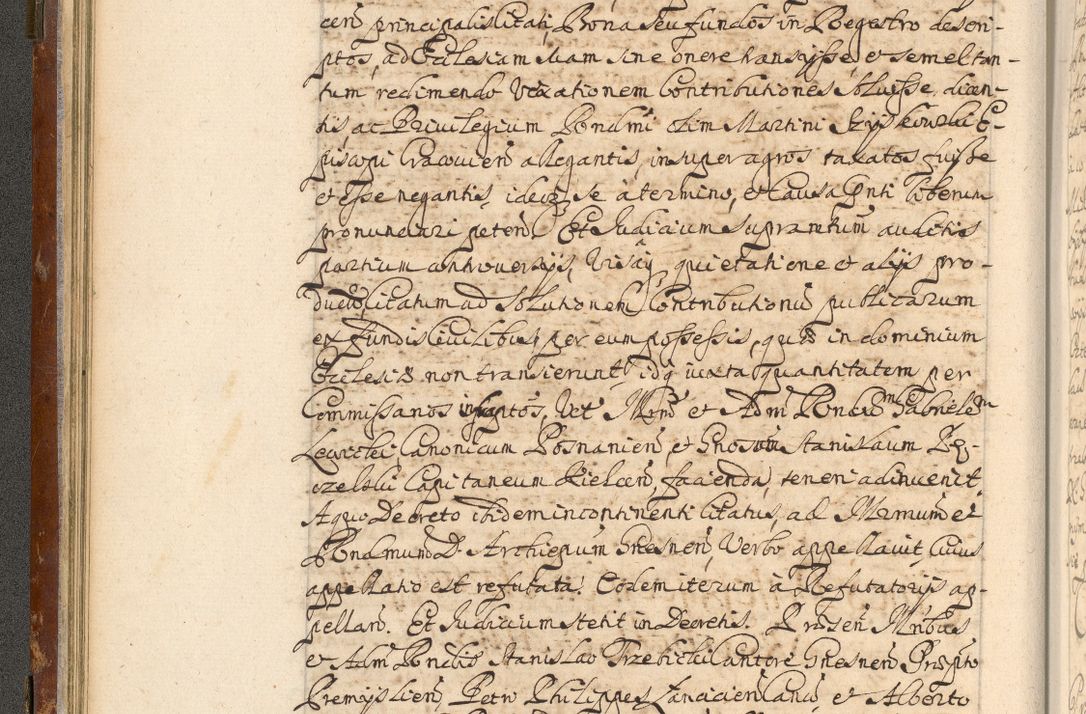 cen principalis Citati, Bona seu fundos in Regestro descri-
ptos, ad Ecclesiam suam sine onere transysse, et semel tan-
tum redimendo vexationem Contributiones soluisse, dicen-
tis ac Privilegium Rendmi olim Martini Szyskowski E-
piscopi Cracovien allegantis, insuper agros taxatos fuisse
et esse negantis, ideoq se a termino, et Causa Gnti liberum
pronunciari peten. Et Judicium Supranttum auditis
partium controversys, visaq quietatione et alys pro-
ductis, Citatum ad solutionem Contributionu publicarum
ex fundis Civilibus, per eum possessis, quae in dominium
Ecclesiae non transierunt, idq iuxta quantitatem per
Commissarios infraptos, Vet Mrm et Adm Rendum Gabrielem
Canonicum Posnanien, et Gnosum Stanislaum
Capitaneum Kielcen, facienda, teneri adinvenit,
A quo Decreto ibidem incontinenti Citatus, ad Illmum et
Rendmum D. Archieppum Gnesnen, Verbo appellavit, Cuius
appellatio est refutata. Eodem iterum a Refutatorijs ap-
pellan. Et Judicium stetit in Decretis. Praesen Mribus
et Adm Rendis Stanislao Trzebicki Cantore Gnesnen Praepto
Premyslien, Petro Philippes Lanciciен Canco, et Alberto